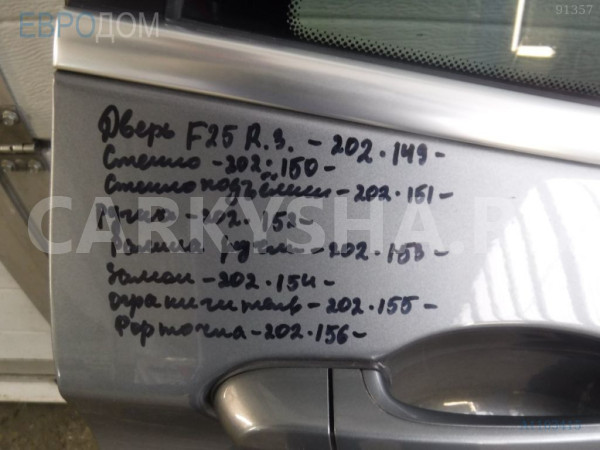 ЕВРОДОМ
91357
Дверь F25 R.З. - 202.149-
Стекло - 202.150-
Стеклоподъёмник - 202.151-
Ручка - 202.152-
Рамка ручки - 202.153-
Замок - 202.154-
ограничитель - 202.155-
Форточка - 202.156-
CARKYSHA.